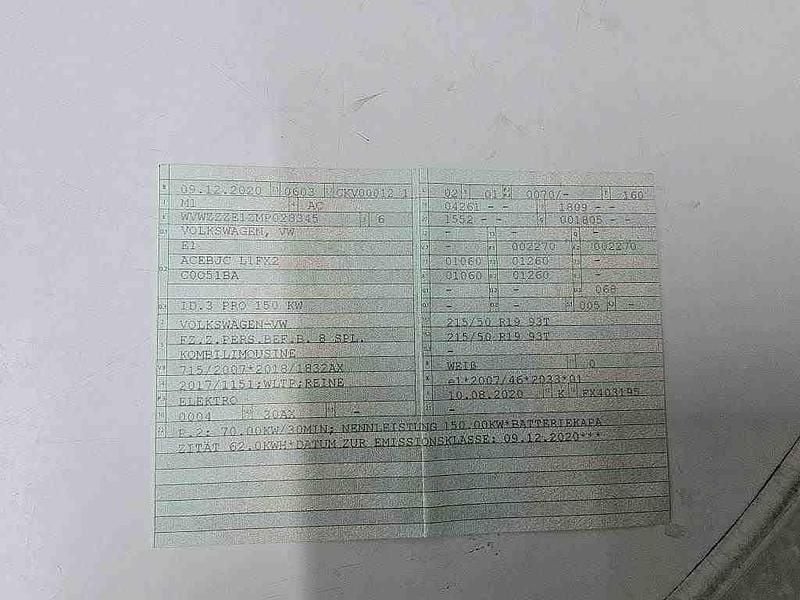 09.12.2020 0603 CKV00012 1
M1 AC
WVWZZZE1ZMP028345 6
VOLKSWAGEN, VW
E1
ACEBJC L1FX2
C0051BA
ID.3 PRO 150 KW
VOLKSWAGEN-VW
FZ.Z.PERS.BEF.B. 8 SPL.
KOMBILIMOUSINE
715/2007*2018/1832AX
2017/1151;WLTP;REINE
ELEKTRO
0004 30AX -
P.2: 70.00KW/30MIN; NENNLEISTUNG 150.00KW*BATTERIEKAPA
ZITÄT 62.0KWH*DATUM ZUR EMISSIONSKLASSE: 09.12.2020***
02 01 0070/- 160
04261 - - 1809 - -
1552 - - 001805 - -
- - -
- 002270 002270
01060 01260 -
01060 01260 -
- - 068
- - 005 -
215/50 R19 93T
215/50 R19 93T
-
WEIß 0
e1*2007/46*2033*01
10.08.2020 K FX403195
-